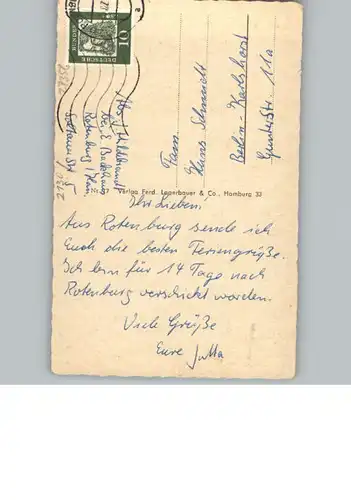 DEUTSCHE
BUNDES
10
Fam.
Hans Schmidt
Berlin-Karlshorst
Gunterstr. 11a
Abs. J. Hildebrandt
Rotenburg / Han.
Verlag Ferd. Lagerbauer & Co., Hamburg 33
Ihr Lieben!
Aus Rotenburg sende ich
Euch die besten Feriengrüße.
Ich bin für 14 Tage nach
Rotenburg verschickt worden.
Viele Grüße
Eure Jutta